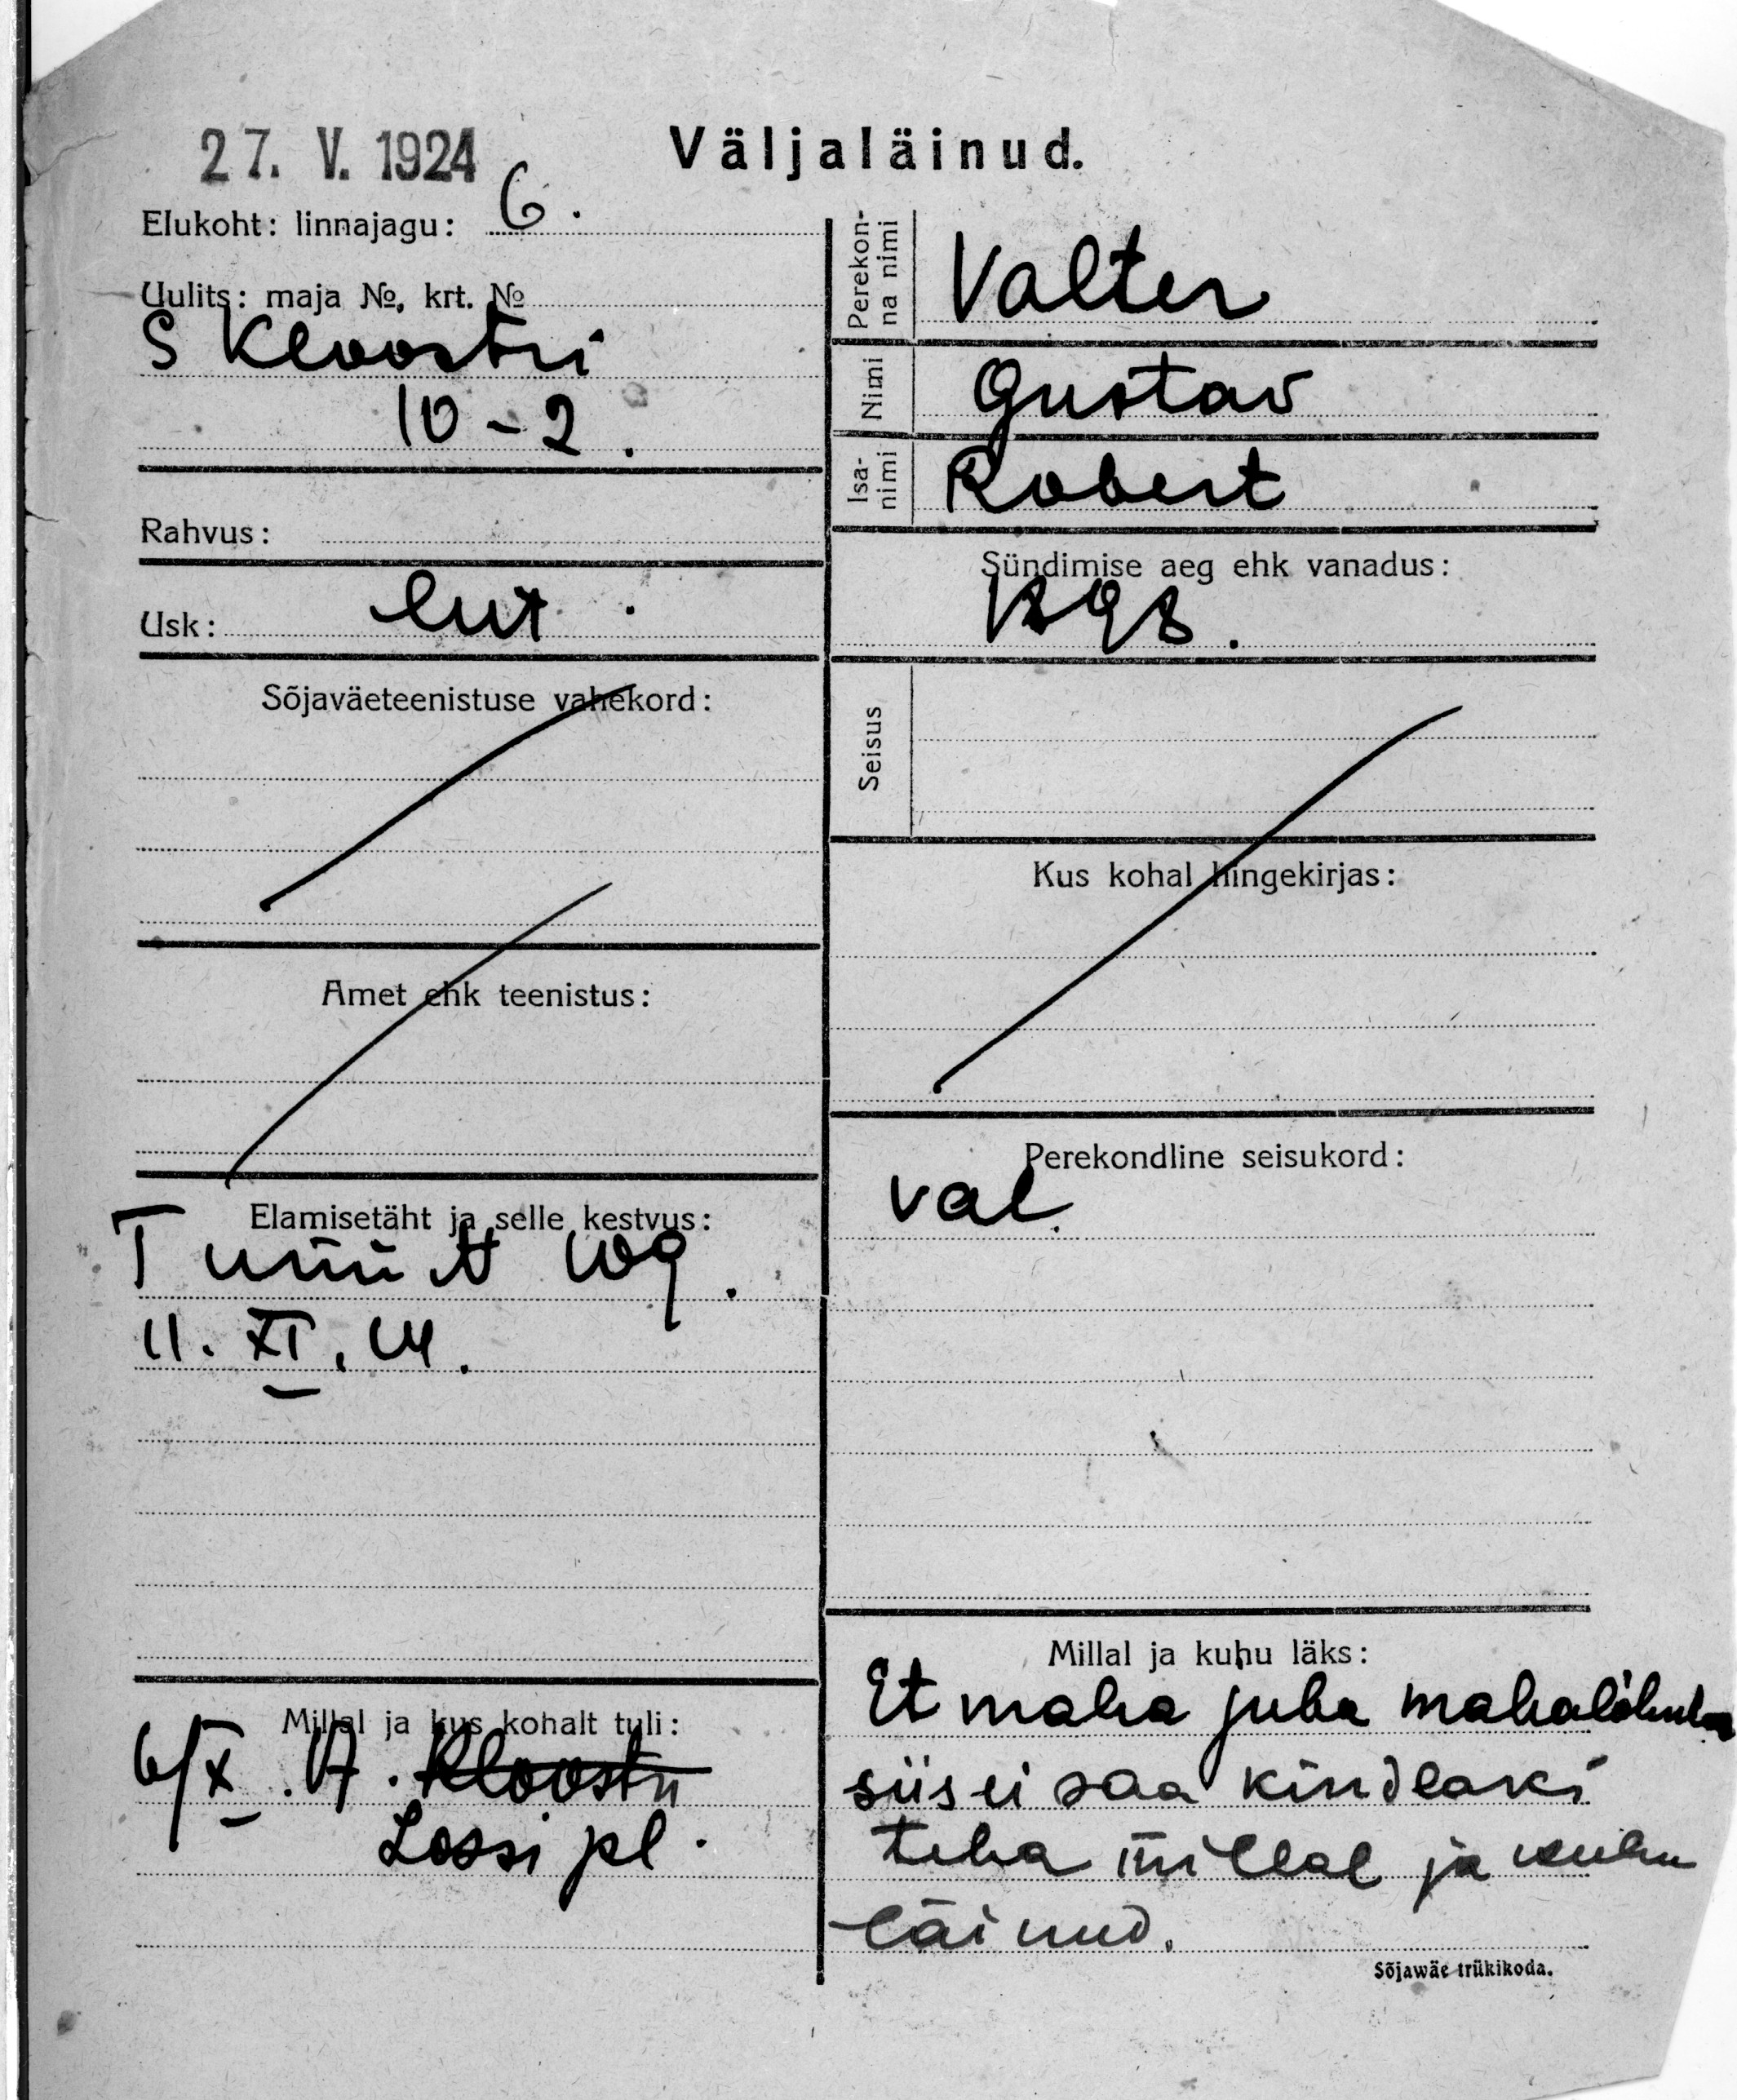 27. V. 1924
Väljaläinud.
Elukoht: linnajagu: 6.
Uulits: maja №, krt. №
S Kloostri
10-2.
Rahvus:
Usk: lut.
Sõjaväeteenistuse vahekord:
Amet ehk teenistus:
Elamisetäht ja selle kestvus:
11. XI.
Millal ja kus kohalt tuli:
6/X. Kloostri
Lossi pl.
Perekonna nimi Valter
Nimi Gustav
Isanimi Robert
Sündimise aeg ehk vanadus:
1898.
Seisus
Kus kohal hingekirjas:
Perekondline seisukord:
val.
Millal ja kuhu läks:
Et maha juba
siis ei saa kindlaks
teha millal ja kuhu
läinud.
Sõjawäe trükikoda.